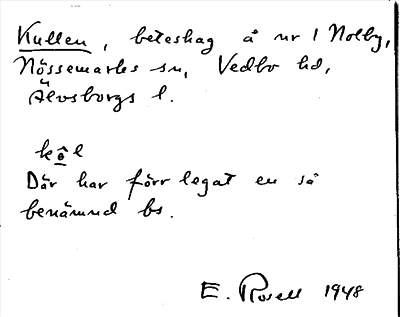 Kullen, beteshag å nr 1 Nolby,
Nössemarks sn, Vedbo hd,
Älvsborgs l.
kôl
Där har förr legat en så
benämnd bs.
E. Rosell 1948